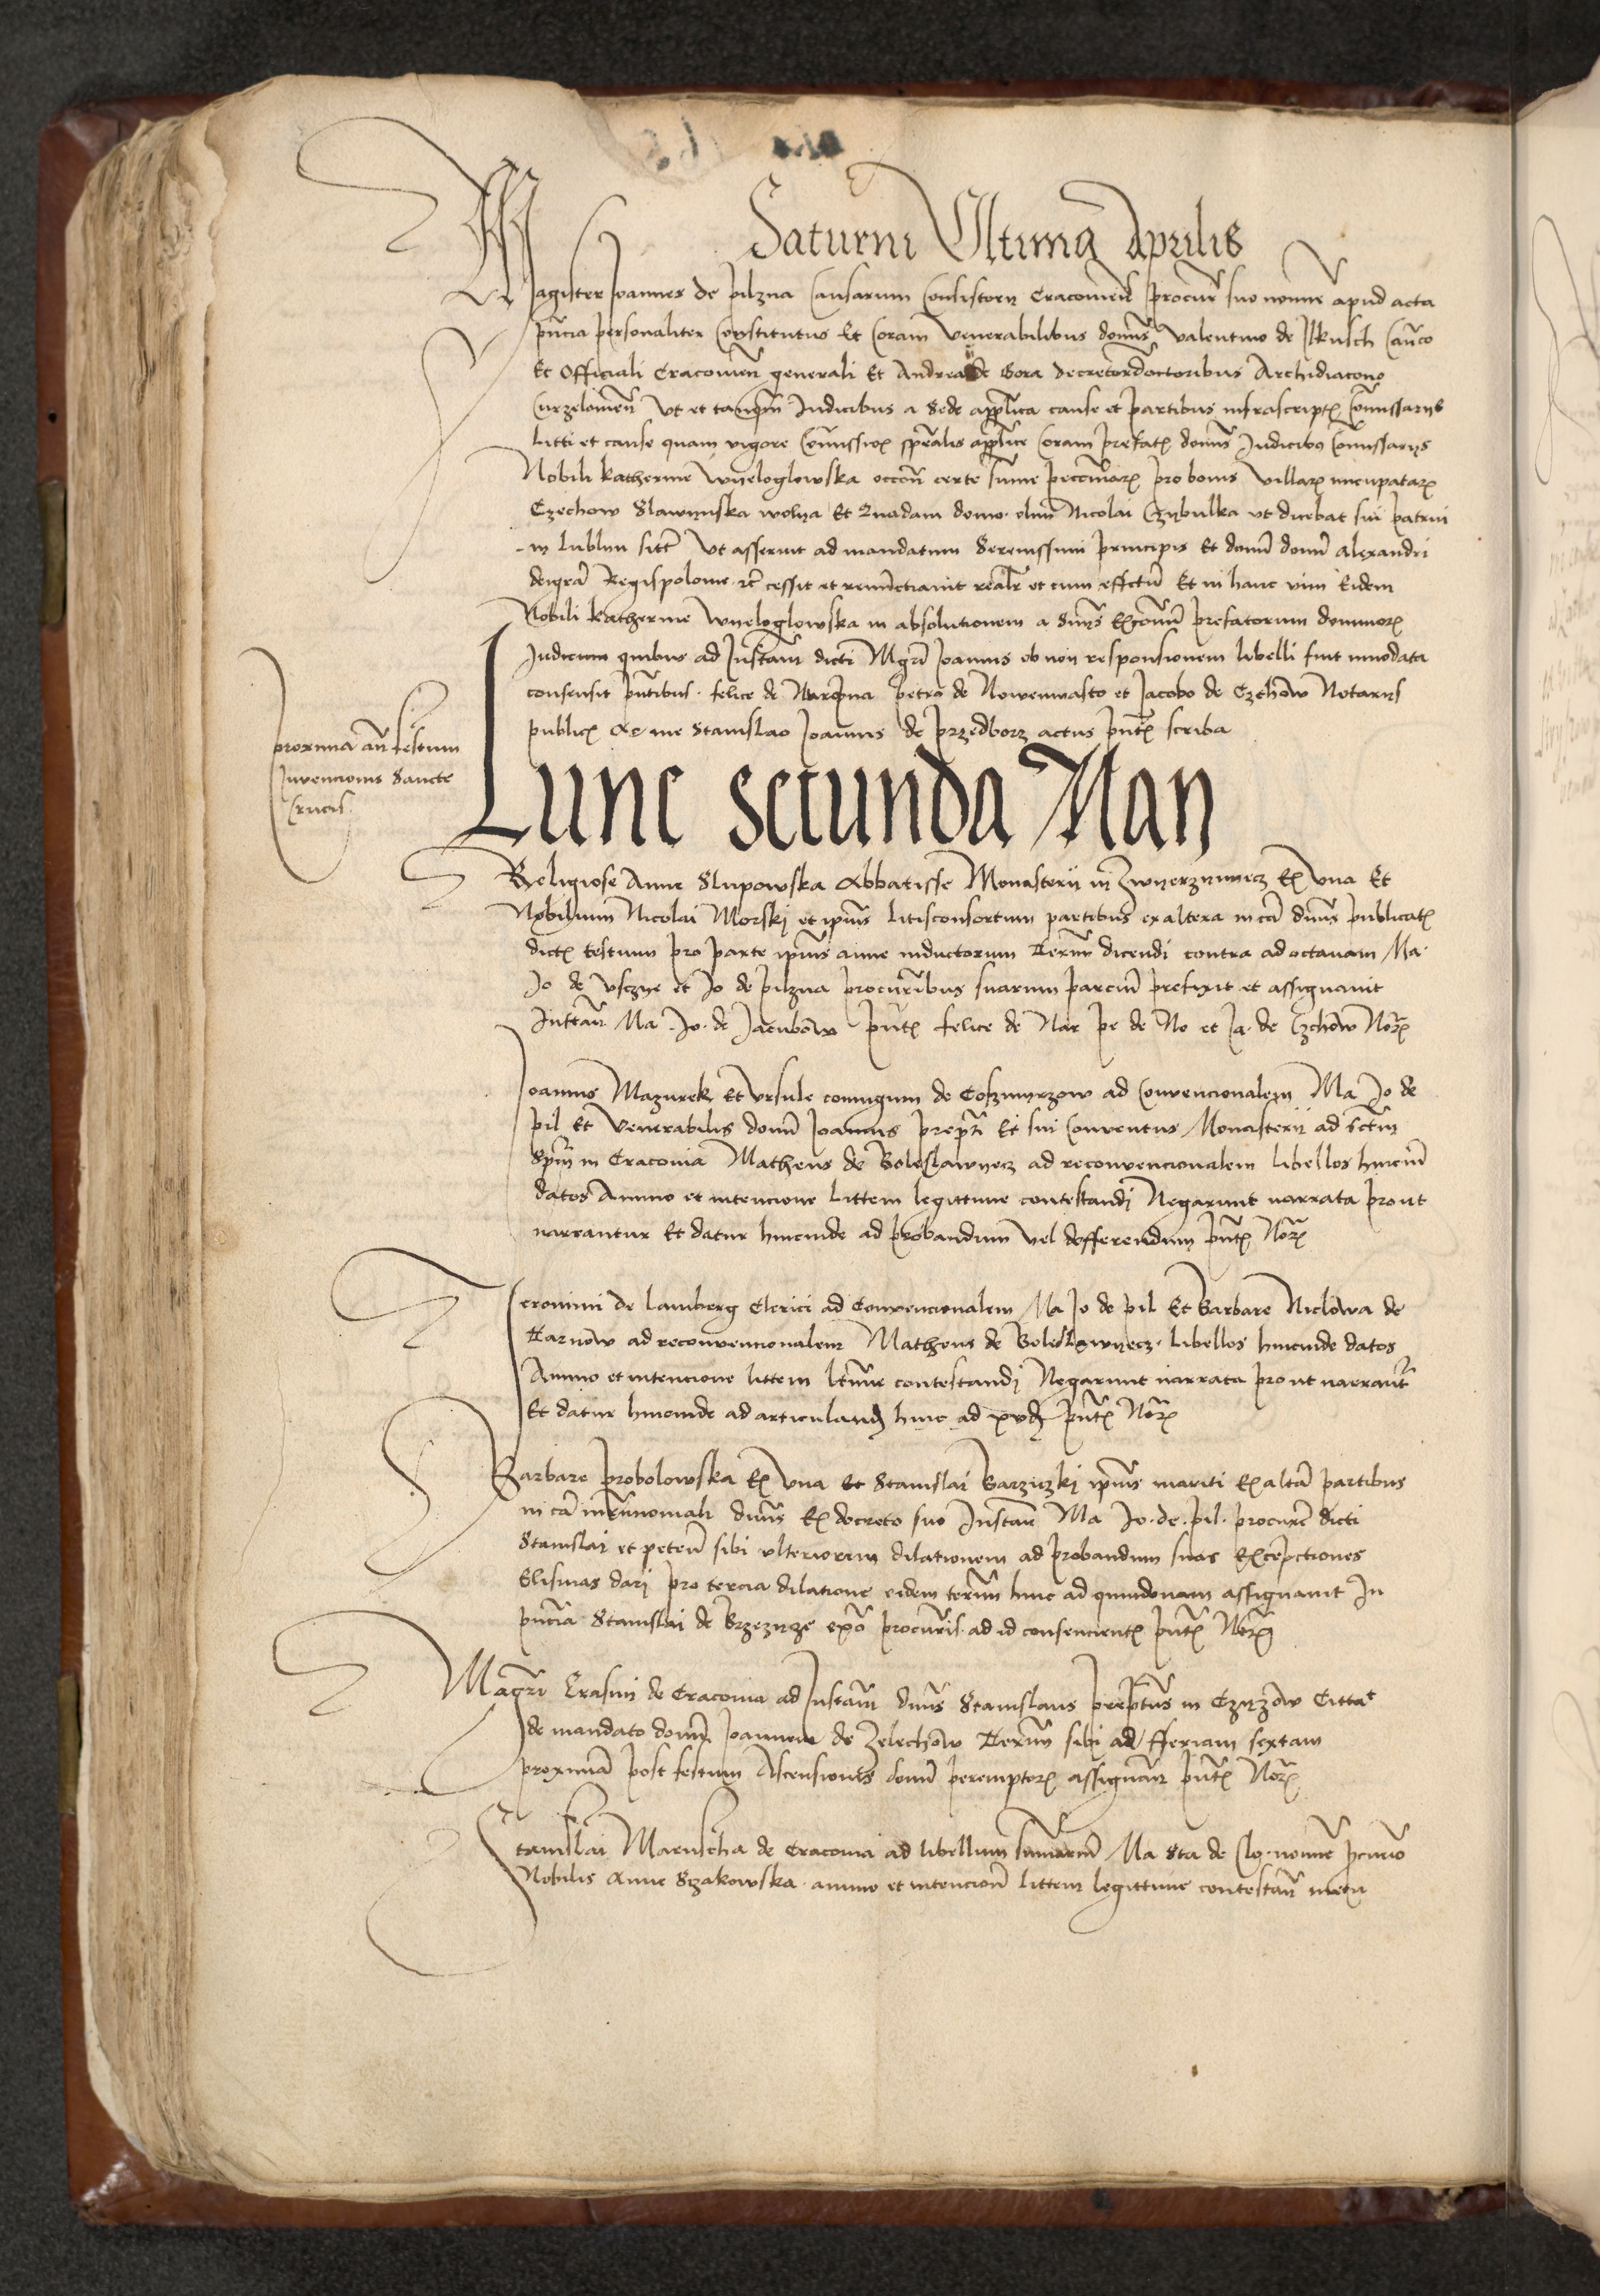 Saturni Ultima Aprilis
Magister Joannes de pilzna Causarum Consistorij Cracovien procur suo nomine apud acta
pncia personaliter Constitutus Et Coram Venerabilibus domis Valentino de Ilkusch Canco
Et Officiali Cracovien generali Et Andrea de Gora decretor doctoribus Archidiacono
Curzelovien Ut et tanqm Judicibus a Sede applica cause et partibus infrascriptis Comissarijs
Litti et cause quam vigore Comission spealis applice Coram prefatis domis Judicibus Comissarijs
Nobili katherine Wyeloglowska occon certe sume pecuniar pro bonis Villar nucupatar
Czechow Slawynska wolya Et Quadam domo olim Nicolai Czybulka ut dicebat sui patrui
in Lublin sitis Ut asseruit ad mandatum Serenissimi principis Et domi domi alexandri
deigra Regis polonie etc cessit et renunctiauit realr et cum effctu Et in hanc vim Eidem
Nobili katherine Wyeloglowska in absolutionem a sinijs Excoum prefatorum dominor
Judicum quibus ad Instam dicti Mgri Joannis ob non responsionem libelli fuit innodata
consensit pntibus felice de Naropna petro de Nowemiasto et Jacobo de Czchow Notarijs
publicis Et me Stanislao Joannis de przedborz actus pntis scriba
proxima an festum
Invencionis Sancte
Crucis
Lune secunda Maij
Religiose Anne Slupowska Abbatisse Monasterij in Zwyerzinnecz Ex Una Et
Nobilium Nicolai Morskj et ipius litisconsortum partibus ex altera in ca dnus publicatis
dictis testium pro parte ipius anne inductorum Termin dicendi contra ad octavam Ma
Jo de Vsczye et Jo de pilzna procuribus suarum parcium prefixit et assignauit
Instan Ma Jo de Jacubow pntis felice de Nar pe de No et Ja de Czchow Nor
Joannis Mazurek Et Vrsule coniugum de Coszmyrzow ad Convencionalem Ma Jo de
pil Et Venerabilis domi Joannis prepti Et sui Conventus Monasterij ad sctm
Spm in Cracovia Matheus de Boleslawyecz ad reconvencionalem libellos hincin
datos Animo et intencione Littem legittime contestandj Negarunt narrata prout
narrantur Et datur hincinde ad probandum Vel defferendum pntis Nor
Jeronimi de Lamberg Clerici ad Convencionalem Ma Jo de pil Et Barbare Niclowa de
Tarnow ad reconvencionalem Matheus de Boleslawyecz libellos hincinde datos
Animo et intencione littem ltime contestandj Negarunt narrata prout narrant
Et datur hincinde ad articuland hinc ad xvd pntis Nor
Barbare probolowska Ex Una Et Stanislai Barziczkj ipius mariti Ex alta partibus
in ca mrimoniali dnus Ex decreto suo Instan Ma Jo de pil procure dicti
Stanislai et peten sibi ulteriorem dilationem ad probandum suas Excepctiones
Elisivas darj pro tercia dilatione eidem termin hinc ad quindenam assignauit In
pncia Stanislai de Brzeznze exo procuris ad id consencientis pntis Nor
Magri Erasmi de Cracovia ad Instam dnus Stanislaus preptus in Czyrzow Cittat
de mandato domi Joannem de Zelechow Termin sibi ad fferiam sextam
proxima post festum Ascensionis domi peremptor assignar pntis Nor
Stanislai Maruscha de Cracovia ad libellum sumarium Ma Sta de Clo nomine pcurio
Nobilis Anne Szakowska animo et intencion Littem legittime contestan